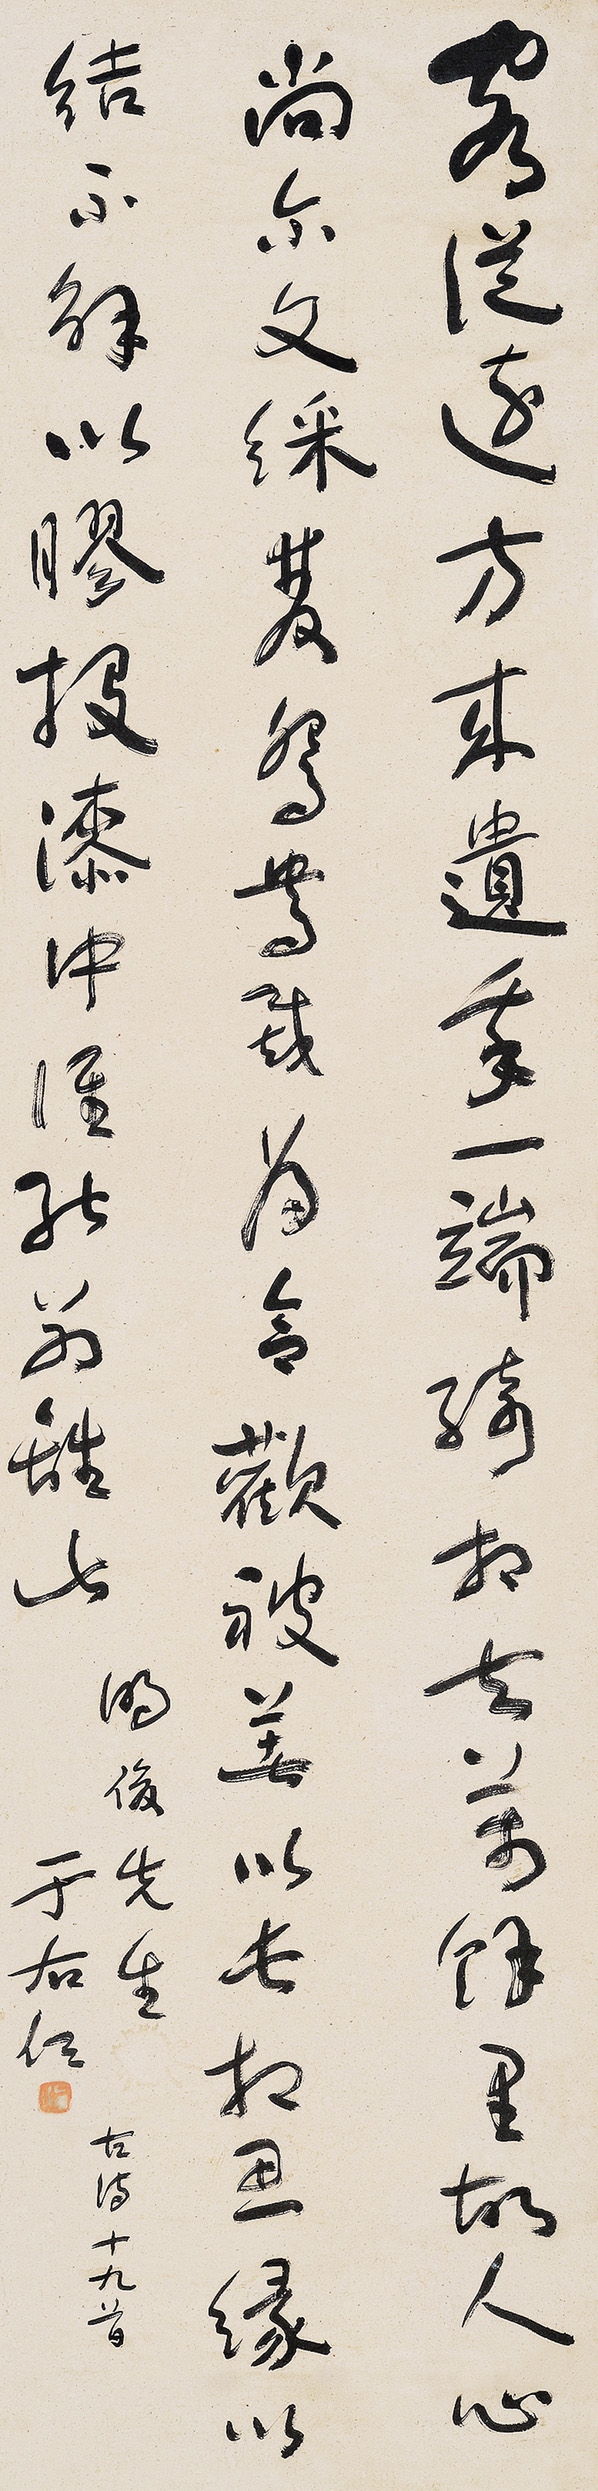 客從遠方來遺我一端綺相去萬餘里故人心
尚尔文綵雙鴛鴦裁為合歡被著以長相思緣以
結不解以膠投漆中誰能別離此
俊先生
于右任
古詩十九首